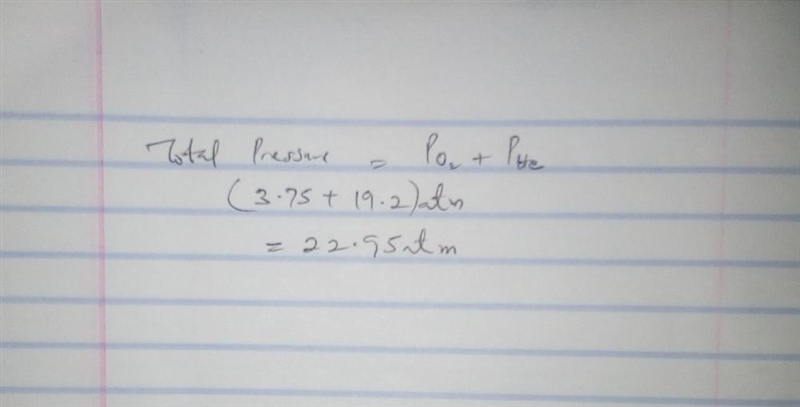 Total Pressure = PO₂ + PHe
(3.75 + 19.2) atm
= 22.95 atm